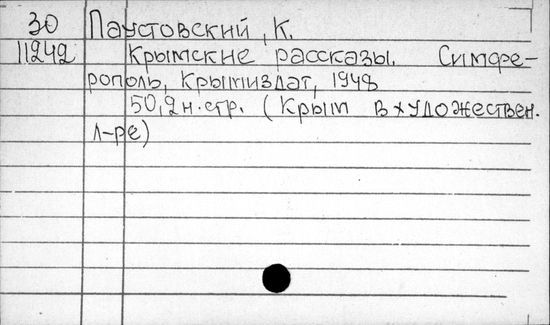 30 Паустовский, К.
11242 Крымские рассказы. Симфе-
рополь, Крымиздат, 1948
50,2н.стр. (Крым в художествен.
л-ре)